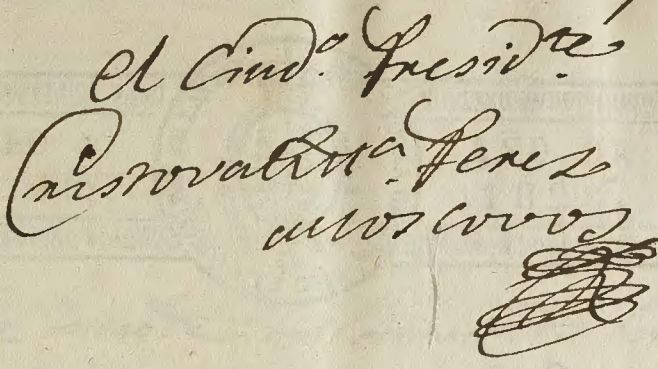 el Ciud.º Presid.te
Cristoval M.a Perez
de los Covos